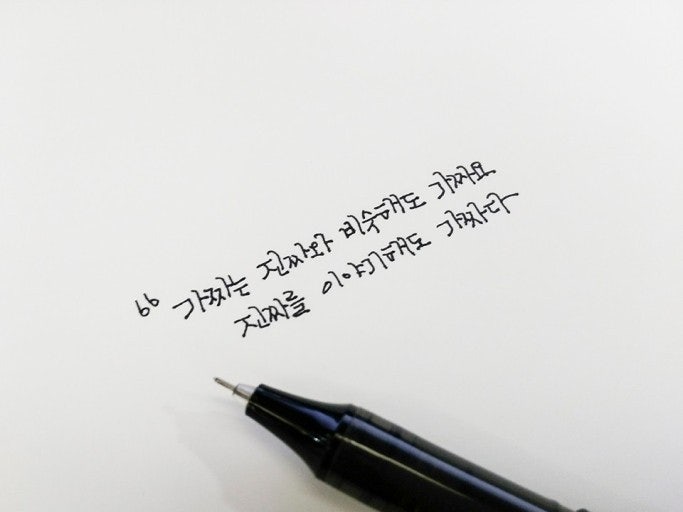 “ 가짜는 진짜와 비슷해도 가짜요
진짜를 이야기해도 가짜다